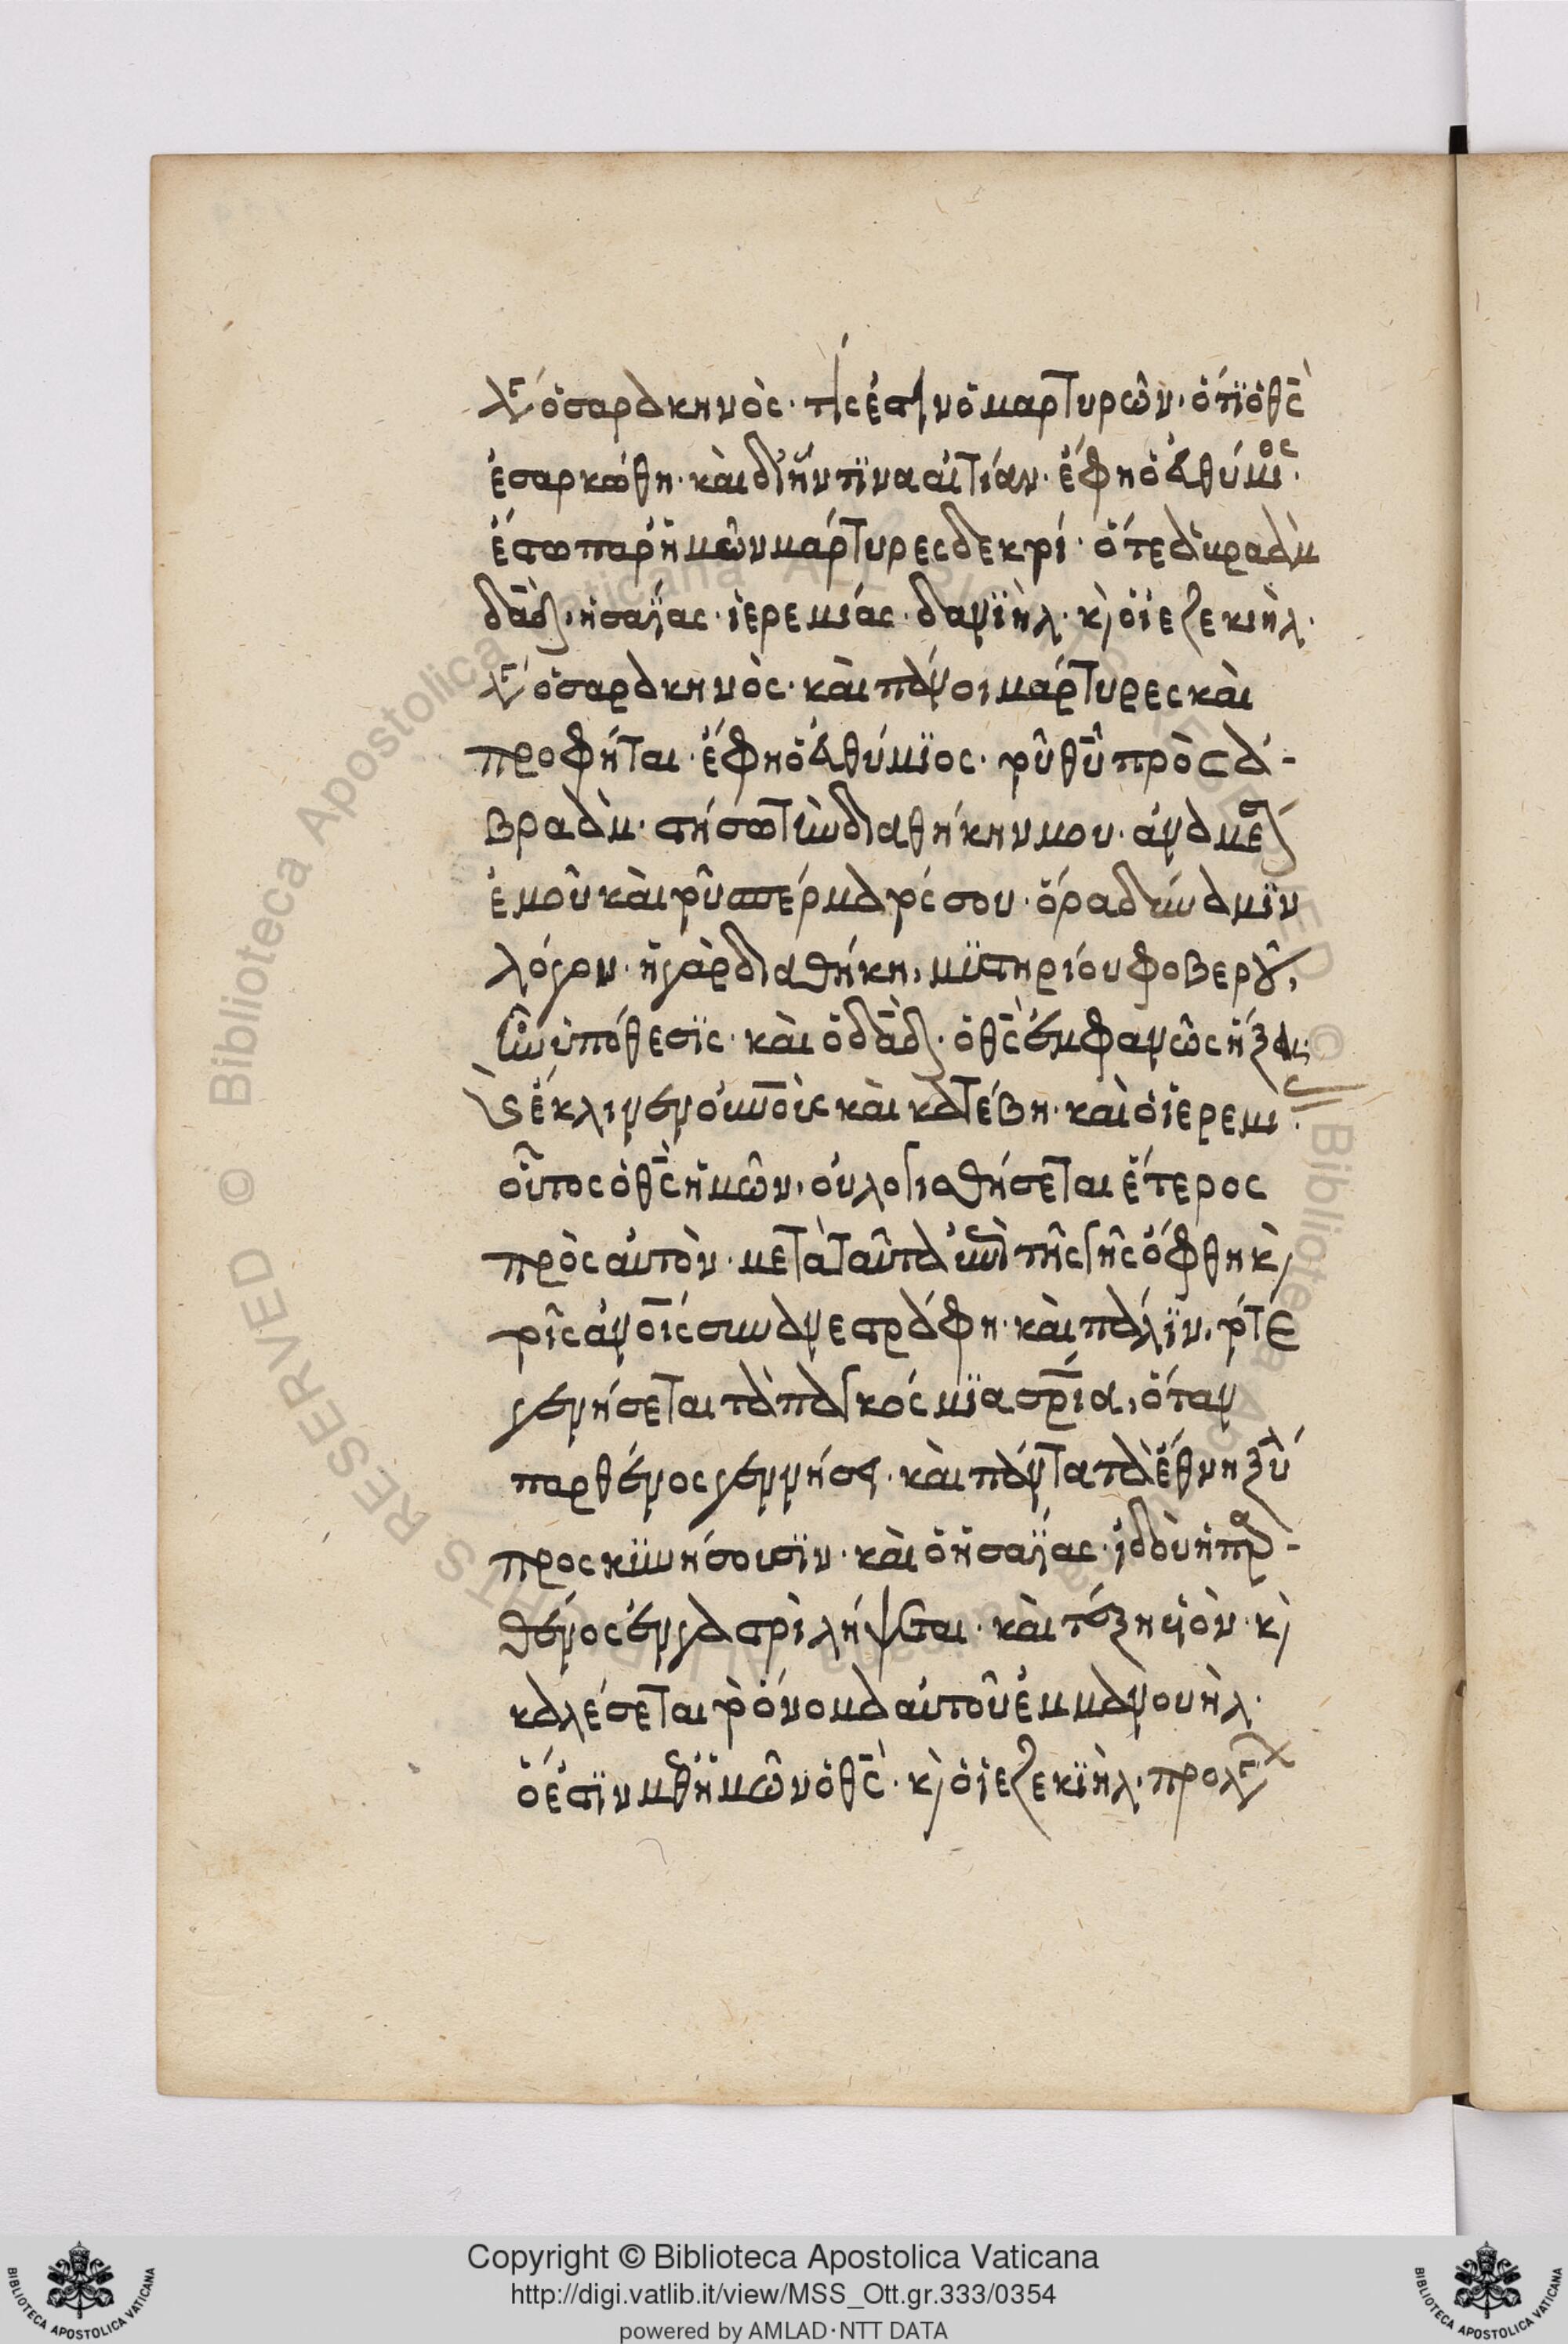 λέγει ὁ σαρακηνὸς· τίς ἐστὶν ὁ μαρτυρῶν· ὅτι ὁ θς
ἐσαρκώθη· καὶ δι' ἥν τινα αἰτίαν· ἔφη ὁ εὐθύμιος·
ἔστω παρ' ἡμῶν μάρτυρες δεκτοί· ὅ τε ἀβραὰμ
δαδ· ἡσαΐας· ἱερεμίας· δανιὴλ· κὶ ὁ ἰεζεκιὴλ·
λέγει ὁ σαρακηνὸς· καὶ πάνυ οἱ μάρτυρες καὶ
προφῆται· ἔφη ὁ εὐθύμιος· τοῦ θυ πρὸς ἀ-
βραὰμ· στήσω τὴν διαθήκην μου· ἀνὰ μέσον
ἐμοῦ καὶ τοῦ σπέρματός σου· ὅρα δύναμιν
λόγον· ἡ γὰρ διαθήκη, μυστηρίου φοβεροῦ,
ἦν ὑπόθεσις· καὶ ὁ δαδ· ὁ θς ἐμφανῶς ἥξει·
καὶ ἔκλινεν οὐνοὺς καὶ κατέβη· καὶ ὁ ἱερεμι·
οὗτος ὁ θς ἡμῶν, οὐ λογισθήσεται ἕτερος
πρὸς αὐτὸν· μετὰ ταῦτα ἐπὶ τῆς γῆς ὤφθη κὶ
τοῖς ἀνοις συνανεστράφη· καὶ πάλιν, τότε
γενήσεται τὰ παγκόσμια σρια, ὅταν
παρθένος γεννήσει· καὶ πάντα τὰ ἔθνη ξύλ
προσκυνήσουσιν· καὶ ὁ ἡσαΐας· ἰδοὺ ἡ παρ-
θένος ἐν γαστρὶ λήψεται· καὶ τέξη υἱὸν· κὶ
καλέσεται τὸ ὄνομα αὐτοῦ ἐμμανουὴλ·
ὅ ἐστιν μθ' ἡμῶν ὁ θς· κὶ ὁ ἰεζεκιὴλ· προλέγει
Copyright © Biblioteca Apostolica Vaticana
http://digi.vatlib.it/view/MSS_Ott.gr.333/0354
powered by AMLAD·NTT DATA